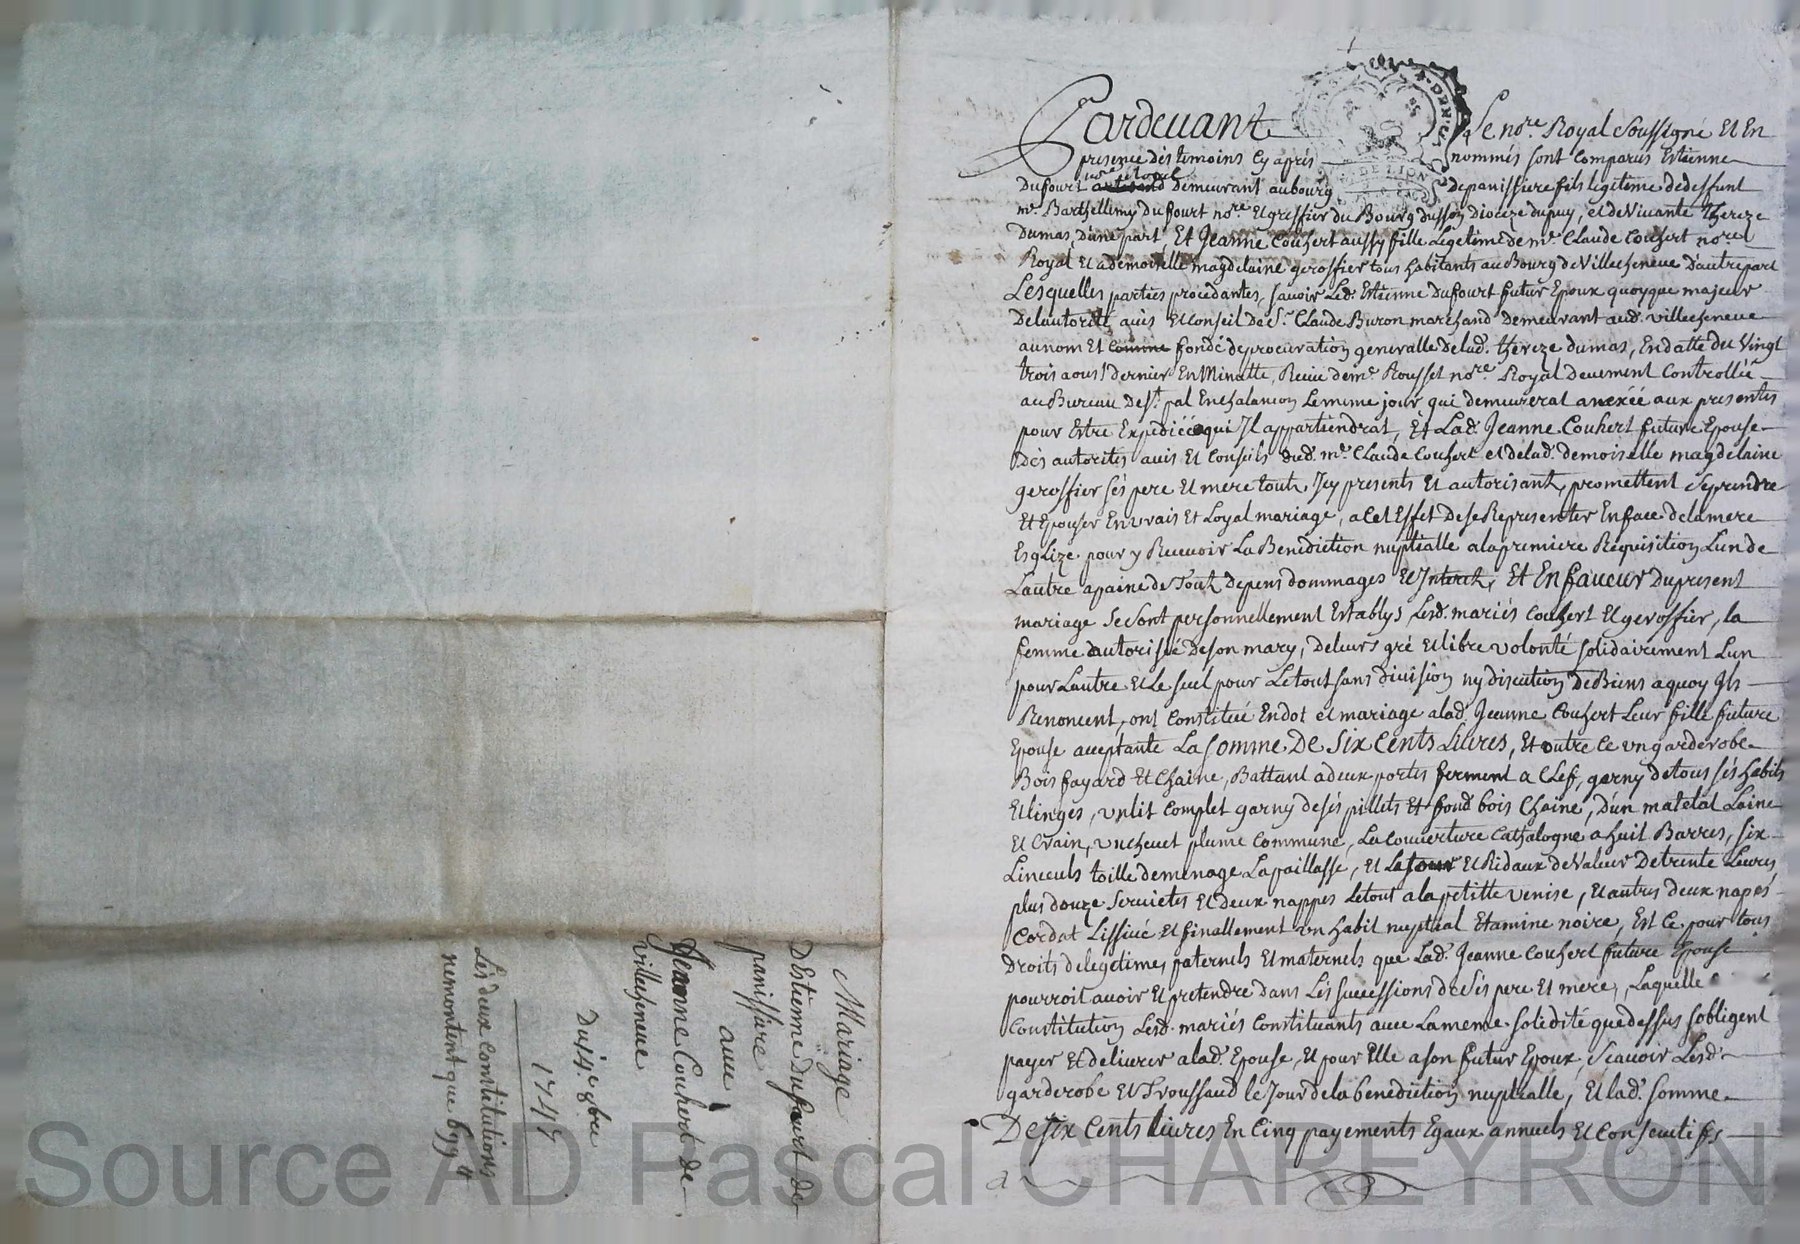 Pardevant Le no.re Royal Soussigné Et En
presence dès temoins Cy après nommés sont Comparus Estienne
Dufourt demeurant au bourg depanissiere fils legitime dedeffunt
m.e Barthellemy Dufourt no.re Et greffier du Bourg dusson Dioceze dupuy, et deVivante thereze
Dumas, D'une part, Et Jeanne Couhert aussy fille Legitime de m.e Claude Couhert no.re
Royal Et ademoiselle magdelaine gerossier tous habitants au Bourg de Villecheneve D'autre part
Lesquelles parties procedantes, sauoir Led. Estienne Dufourt futur Epoux quoyque majeur
Delautorité auis Et Conseil De S.r Claude Buron marchand Demeurant aud. villecheneve
au nom Et comme fondé deprocuration generalle delad. thereze dumas, En datte du Vingt
trois aoust Dernier En Minutte, Recüe de m.e Rousset no.re Royal Deuement Controllée
au Bureau De S.t pal En chalancon Le mime jour qui demeurerat anexéé aux presentes
pour Estre Expediéé aqui Jl appartiendrat, Et Lad. Jeanne Couhert future Epouse
Dès autorites auis Et Conseils dud. m.e Claude Couhert et delad. demoiselle magdelaine
gerossier sès pere Et mere touts Jcy presents Et autorisants, promettent Seprendre
Et Epouser En vrais Et Loyal mariage, a cet Effet De se Representer En face delamere
Esglize pour y Recevoir La Benediction nuptialle alapremiere Requisition Lun de
Lautre apaine de Touts Depens dommages Et Jnterets, Et En faveur Dupresent
mariage Se Sont personnellement Establys Lesd. mariés Couhert Et gerossier, la
femme dautorisée De son mary, deleurs gré Et libre volonté solidairement Lun
pour Lautre Et Le seul pour Le tout sans division ny discution De Biens a quoy Jls
Renoncent, ont Constitué En dot et mariage alad. Jeanne Couhert Leur fille future
Epouse acceptante La Somme De Six Cents Livres, Et outre Ce un garderobe
Bois fayard Et Chaine, Battant adeux portes ferment a Clef, garny detous sès habits
Et linges, un lit Complet garny desès pilliets Et fond bois Chaine, D'un matelat Laine
Et Crain, un chevet plume Commune, La Couverture Cathalogne a huit Barres, six
Linceuls toille demenage La paillasse, Et Letour Et Ridaux de Valeur De trente Livres
plus douze Servietes Et deux nappes Letout alapetitte venise, Et autres deux napes
Cordat Lissivé Et finallement un habit nuptial Etamine noire, Est Ce pour tous
Droits delegetimes paternels Et maternels que Lad. Jeanne Couhert future Epouse
pourroit avoir Et pretendre dans Lès successions De Sès pere Et mere, Laquelle
Constitution Lesd. mariés Constituants avec Lameme solidité que dessus sobligent
payer Et delivrer alad. Epouse, Et pour Elle a son futur Epoux, Scavoir Lesd.
garderobe Et Troussaud le Jour dela benediction nuptialle, Et lad. Somme
De Six Cents livres En Cinq payements Egaux annuels Et Consecutifs
Mariage
D'Estienne Dufourt de
panissiere
avec
Jeanne Couhert de
villecheneve
Du 19.e 9bre
1749
Lès deux Constitutions
nemontent que 699 tt
Source AD Pascal CHAREYRON